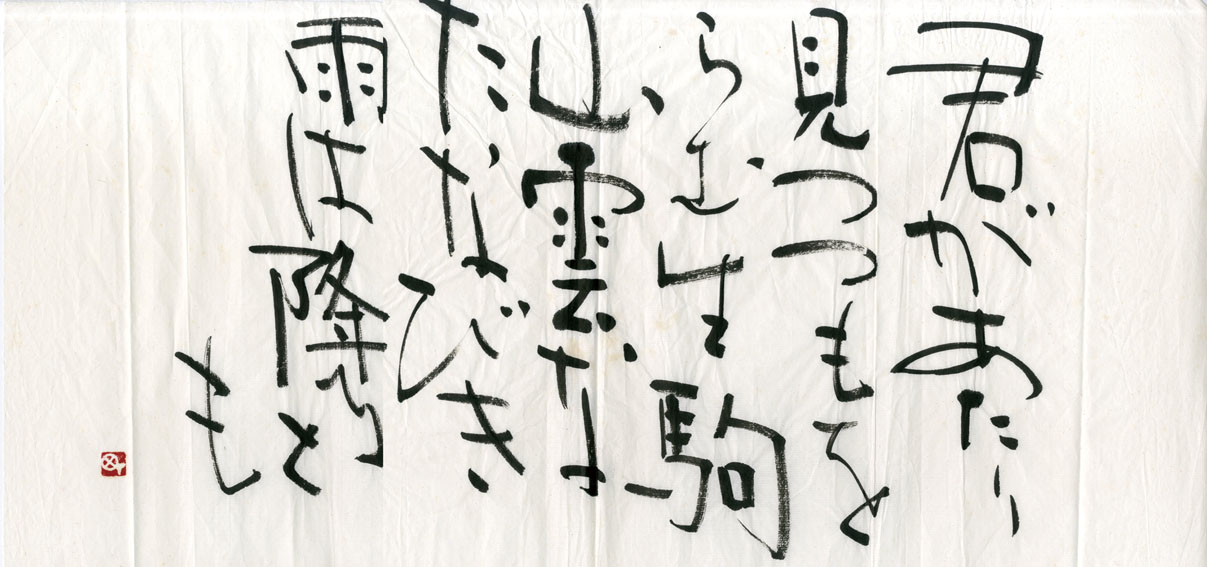 君があたり
見つつもを
らむ生駒
山雲な
たなびき
雨は降ると
も